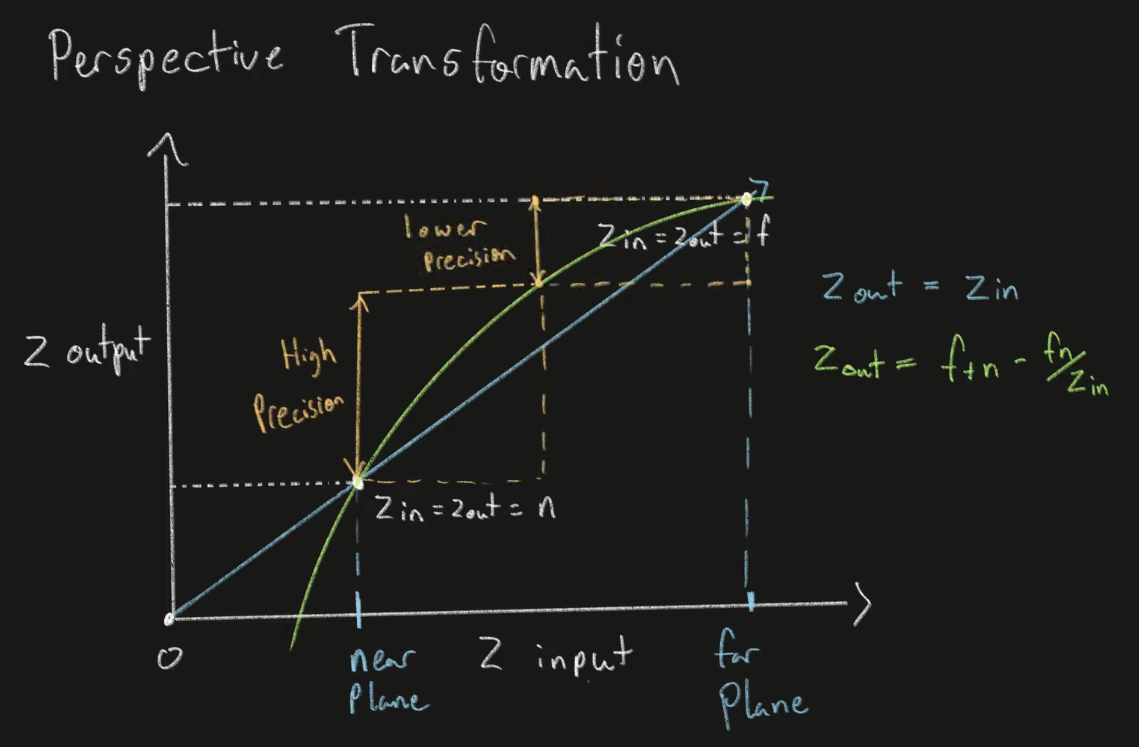 Perspective Transformation
lower
Precision
Zin = Zout = f
High
Precision
Z output
Zout = Zin
Zout = f+n - fn/Zin
Zin = Zout = n
0
near
Plane
Z input
far
Plane